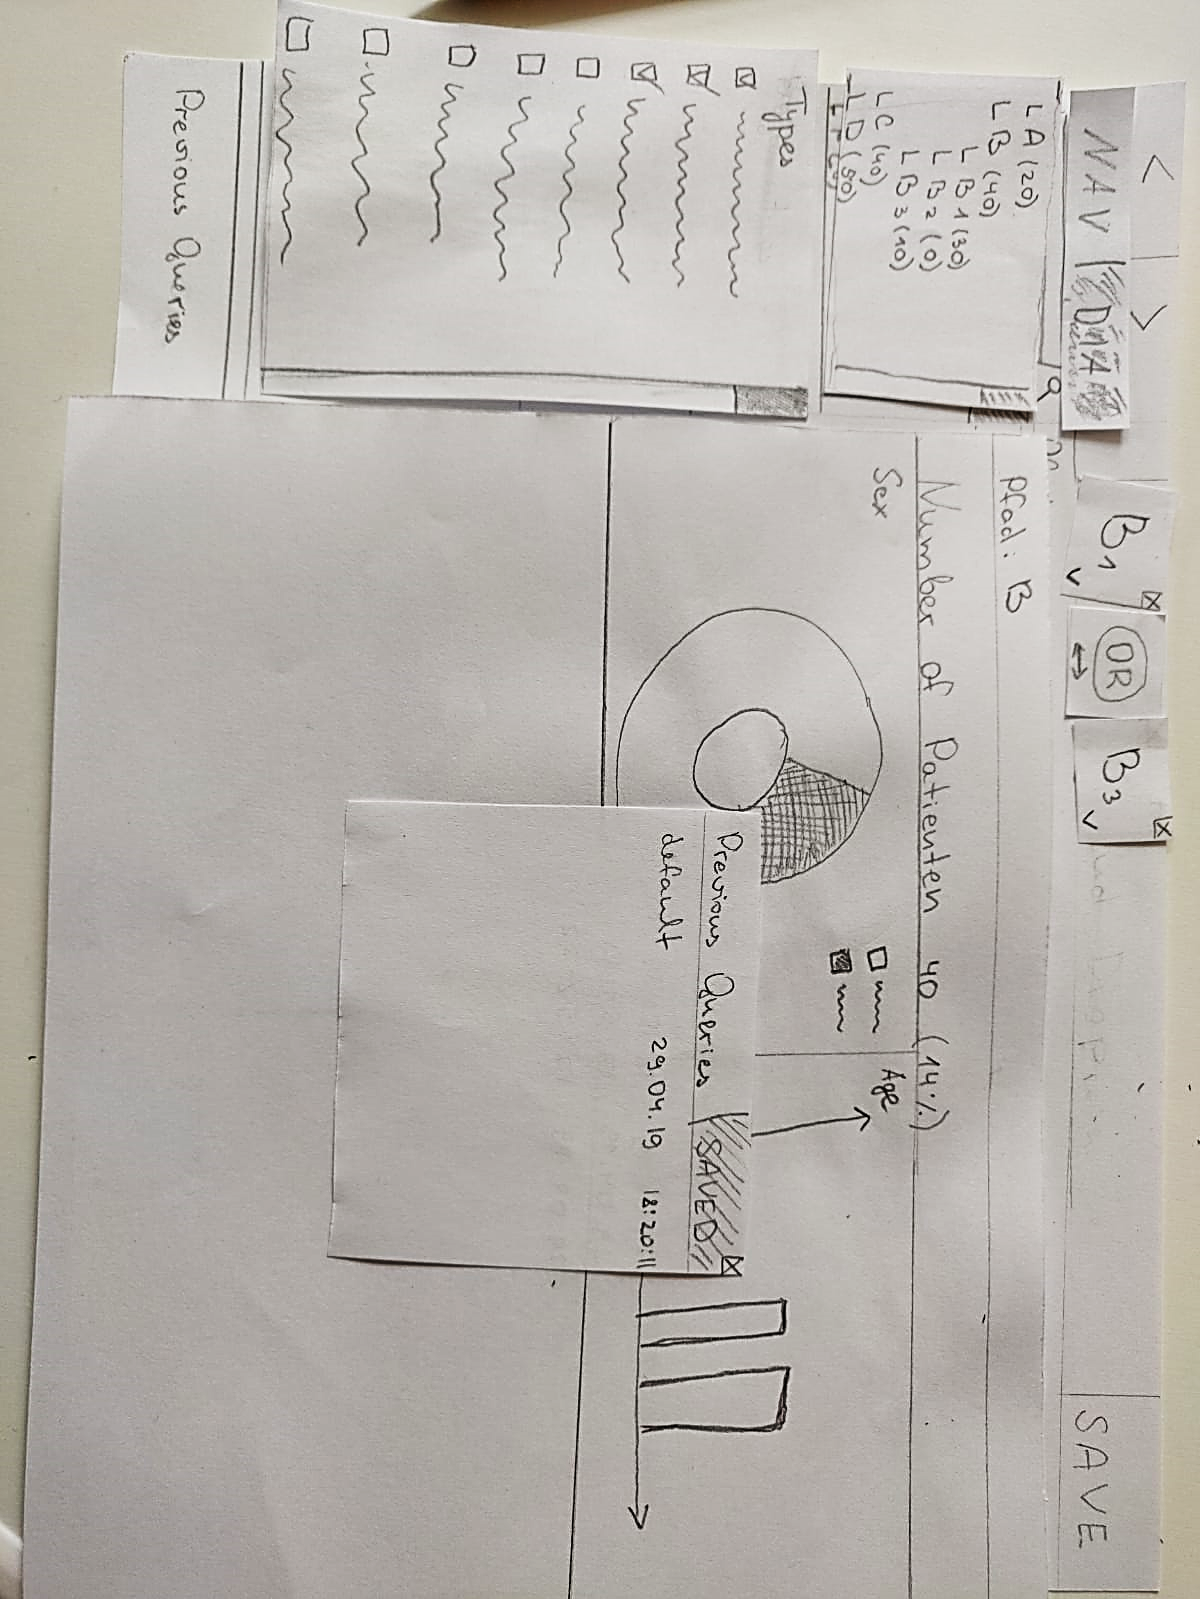 < >
B1 OR B3
SAVE
NAV DNA
L A (20)
L B (40)
L B1 (30)
L B2 (0)
L B3 (10)
L C (40)
L D (50)
Types
Previous Queries
Pfad: B
Number of Patienten 40 (14%)
Sex
Age
Previous Queries SAVED
default 29.04.19 18:20:11